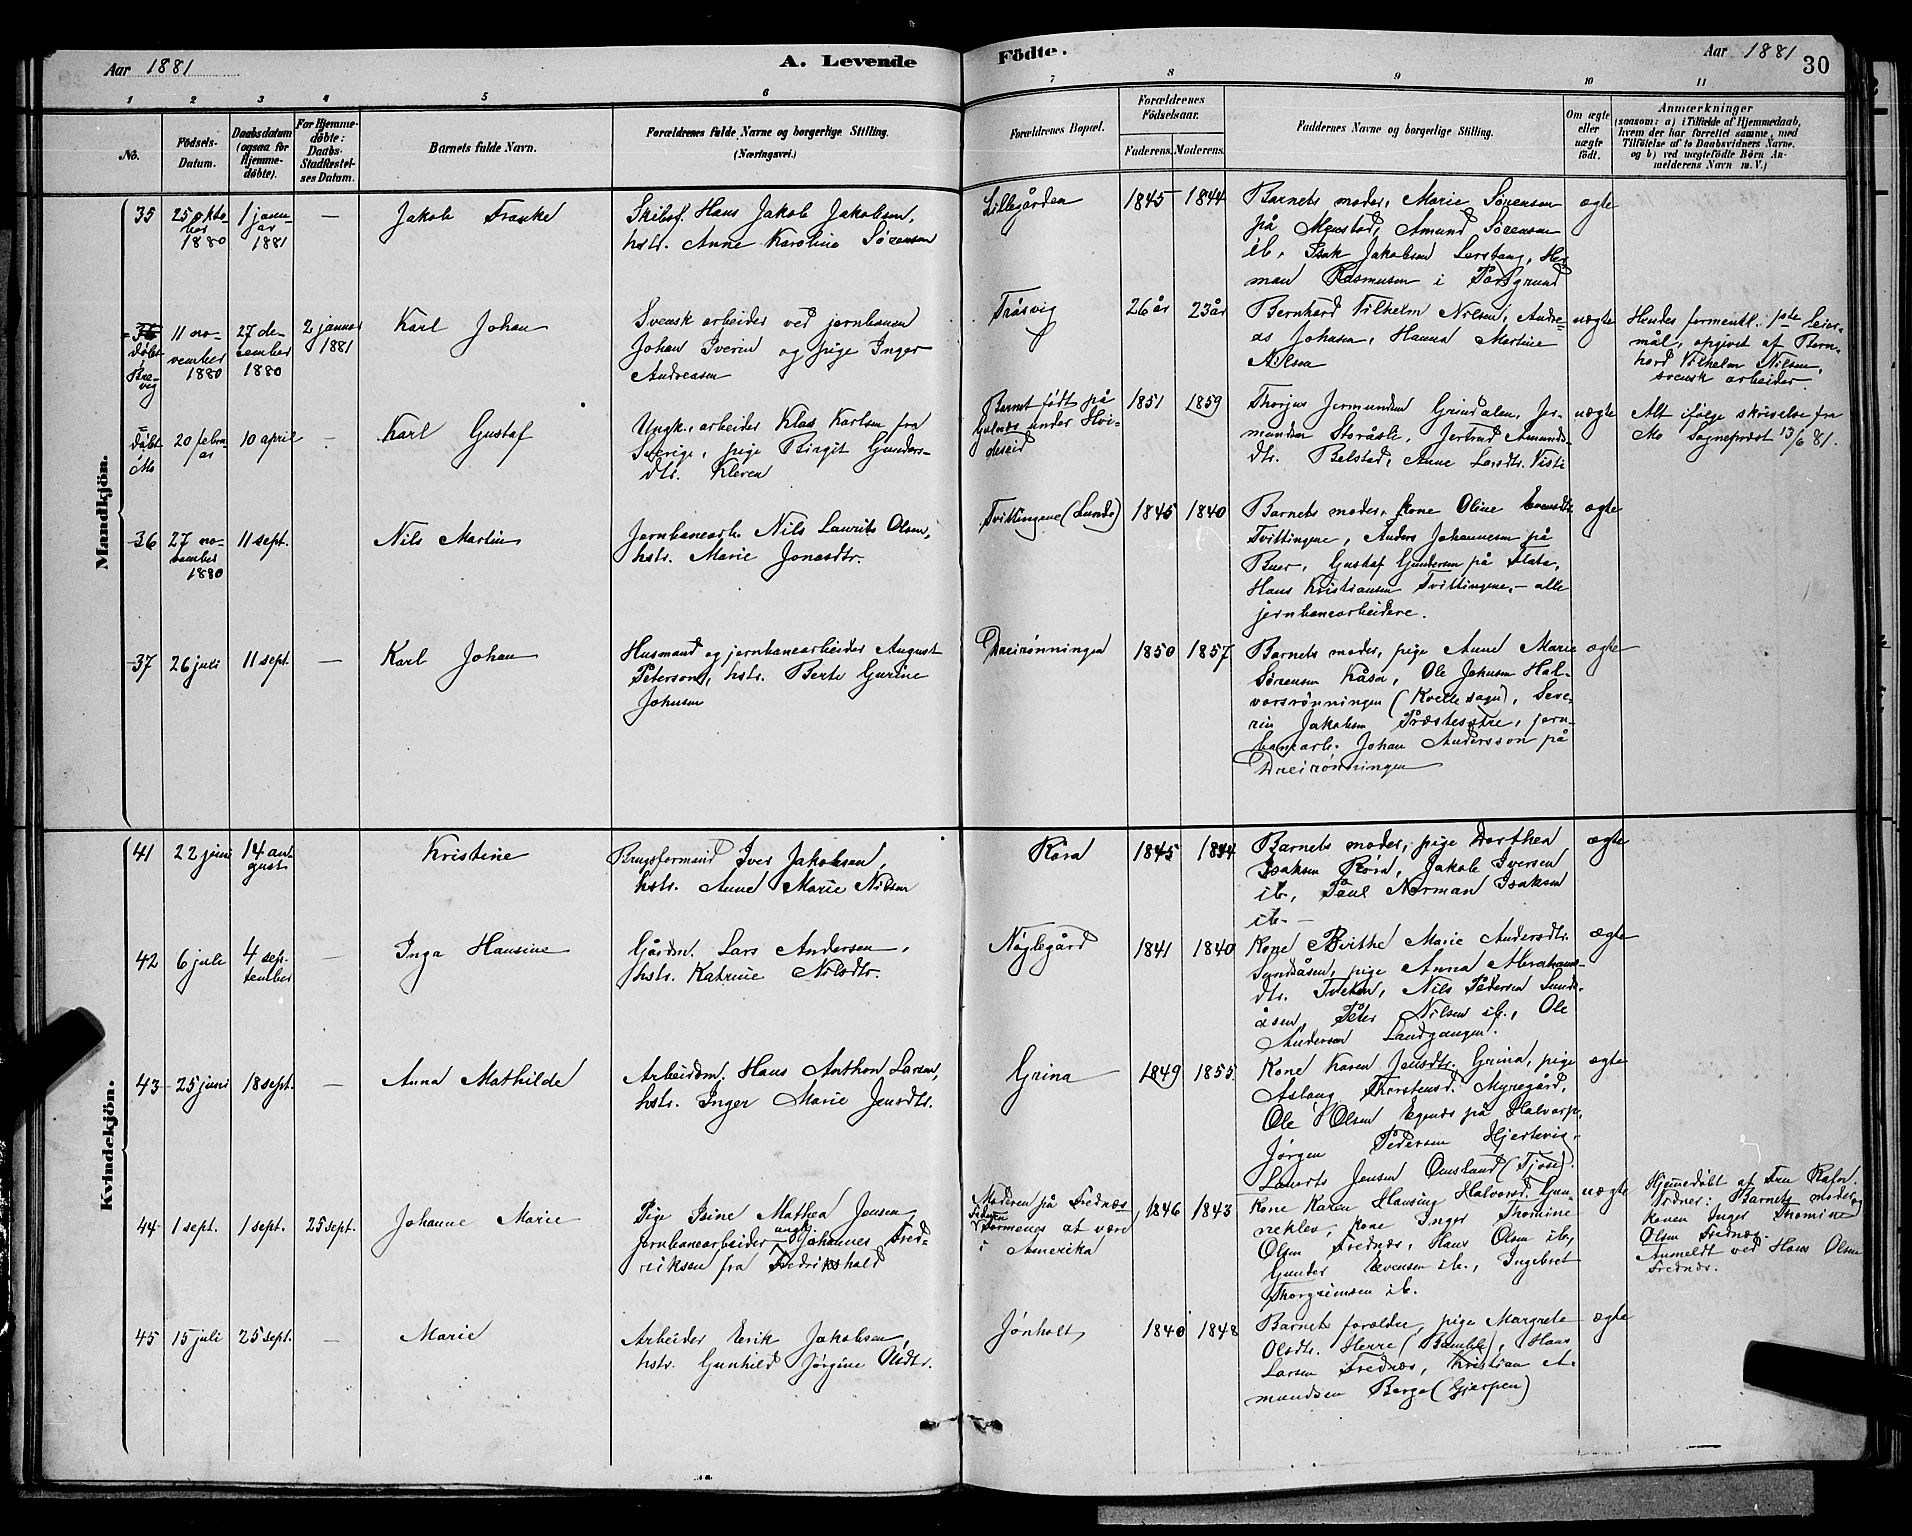 Aar 1881
A. Levende
Födte.
Aar 1881
30
1 2 3 4 5 6 7 8 9 10 11
No.
Födsels-
Datum.
Daabsdatum
(ogsaa for
Hjemme-
døbte).
For Hjemme-
døbte:
Daabs-
Stadfæstel-
ses Datum.
Barnets fulde Navn.
Forældrenes fulde Navne og borgerlige Stilling.
(Næringsvei.)
Forældrenes Bopæl.
Forældrenes
Fødselsaar.
Faderens.
Moderens.
Faddernes Navne og borgerlige Stilling.
Om ægte
eller
uægte
født.
Anmærkninger
(saasom: a) i Tilfælde af Hjemmedaab,
hvem der har forrettet samme, med
Tilføielse af to Daabsvidners Navne.
og b) ved uægtefødte Børn An-
melderens Navn m. V.)
Mandkjön.
35
25 okto-
ber
1880
1 janu-
ar
1881
—
Jakob Franke
Skibsf. Hans Jakob Jakobsen,
hstr. Anne Karoline Sørensen
Lillegården
1845
1844
Barnets moder, Marie Sørensen
på Menstad, Amund Sørensen
ib., Isak Jakobsen Lerstang, Her-
man Rasmusen i Porsgrund
ægte
døbt
Bre-
vig
11 no-
vember
1880
27 de-
cember
1880
2 januar
1881
Karl Johan
Svensk arbeider ved jernbanen
Johan Iverin og pige Inger
Andreasen
Trosvig
26 år
23 år
Bernhard Vilhelm Nilsen, Andre-
as Johnsen, Hanna Martine
Nilsen
uægte
Hendes formentl. 1ste leier-
mål, opgivet af Bern-
hard Vilhelm Nilsen,
svensk arbeider
=
døbt
i Mo
20 febru-
ar
10 april
-
Karl Gustaf
Ungk., arbeider Klas Karlsen fra
Sverige, pige Birgit Gunders-
dtr. Kleven
Barnet født på
under Hvi-
deseid
1851
1859
Thorjus Jermundsen Grindalen, Jer-
mundsen Storåsli, Jertrud Amunds-
dtr. Belstad, Anne Larsdtr. Visti
uægte
Alt ifølge skrivelse fra
Mo Sognepræst 13/6 81.
36
27 no-
vember
1880
11 sept.
Nils Martin
Jernbanearb. Nils Laurits Olsen,
hstr. Marie Jonasdtr.
Tvittingene (Lunde)
1845
1840
Barnets moder, kone Oline Evensdtr.
Tvittingene, Anders Johannesen på
Buer, Gustaf Gundersen på Flata,
Hans Kristiansen Tvittingene, - alle
jernbanearbeidere.
ægte
37
26 juli
11 sept.
—
Karl Johan
Husmand og jernbanearbeider August
Peterson, hstr. Berte Gurine
Johnsen
Dreirønningen
1850
1857
Barnets moder, pige Anne Marie
Sørensen Kåsa, Ole Johnsen Hal-
vorsrønningen (Kvelle sogn), Seve-
rin Jakobsen Præstesætre, jern-
banearb. Johan Andersson på
Dreirønningen
ægte
Kvindekjön.
41
22 juni
14 au-
gust
Kristine
Brugsformand Iver Jakobsen,
hstr. Anne Marie Nilsen
Røra
1845
1844
Barnets moder, pige Dorthea
Isaksen Røra, Jakob Iversen
ib., Paul Norman Isaksen
ib. -
ægte
42
6 juli
4 sep-
tember
—
Inga Hansine
Gårdm. Lars Andersen,
hstr. Katrine Nilsdtr.
Nøglegård
1841
1840
Kone Berthe Marie Andersdtr.
Sundsåsen, pige Anna Abrahams-
dtr. Tveten, Nils Pedersen Sunds-
åsen, Peter Nilsen ib., Ole
Andersen Landgangen.
ægte
43
25 juni
18 sept.
—
Anna Mathilde
Arbeidsm. Hans Anthon Larsen,
hstr. Inger Marie Jensdtr.
Grina
1849
1855
Kone Karen Jensdtr. Grina, pige
Aslaug Thorstensd. Myregård,
Ole Olsen Egenæs på Halvarp,
Jørgen Pedersen Hjertevig,
Laurits Jensen Omsland (Tjose).
ægte
44
1 sept.
1 sept.
25 sept.
Johanne Marie
Pige Isine Mathea Jensen,
jernbanearbeider ungk. Johannes Fred-
riksen fra Fredrikshald
Moderen på Frednæs
Faderen
formenes at være
i Amerika
1846
1843
Kone Karen Hansine Halvorsd. Gun-
neklev, kone Inger Thomine
Olsen Frednæs, Hans Olsen ib.,
Gunder Evensen ib., Ingebret
Thorgrimsen ib.
uægte
Hjemmedøbt af Fru Rafn.
Vidner: Barnets moder og
konen Inger Thomine
Olsen Frednæs.
Anmeldt ved Hans Olsen
Frednæs.
45
15 juli
25 sept.
—
Marie
Arbeider Erik Jakobsen,
hstr. Gunhild Jørgine Olsdtr.
Jønholt
1840
1848
Barnets forældre, pige Margrete
Olsdtr. Herre (Bamble), Hans
Larsen Frednæs, Kristian A-
mundsen Berge (Gjerpen)
ægte